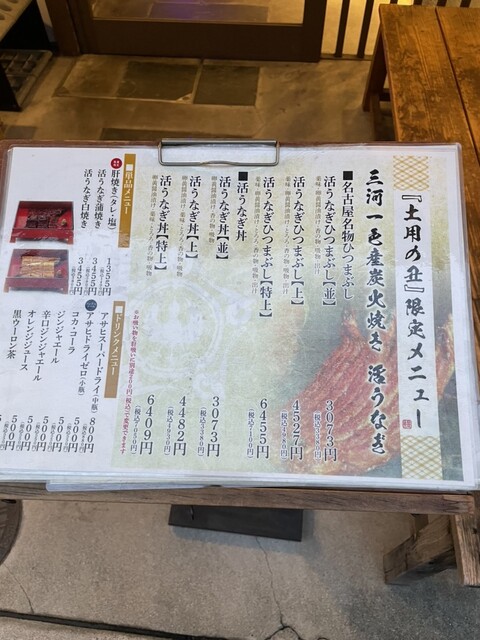 『土用の丑』限定メニュー
三河一色産炭火焼き 活うなぎ
■名古屋名物ひつまぶし
活うなぎひつまぶし【並】
3073円
(税込3380円)
活うなぎひつまぶし【上】
4527円
(税込4980円)
活うなぎひつまぶし【特上】
6455円
(税込7100円)
■活うなぎ丼
活うなぎ丼【並】
3073円
(税込3380円)
活うなぎ丼【上】
4482円
(税込4930円)
活うなぎ丼【特上】
6409円
(税込7050円)
■単品メニュー
肝焼き(タレ・塩)
1355円
活うなぎ蒲焼き
3455円
活うなぎ白焼き
3455円
■ドリンクメニュー
アサヒスーパードライ(中瓶)
800円
アサヒドライゼロ(小瓶)
500円
コカ・コーラ
500円
ジンジャエール
500円
辛口ジンジャエール
500円
オレンジジュース
500円
黒ウーロン茶